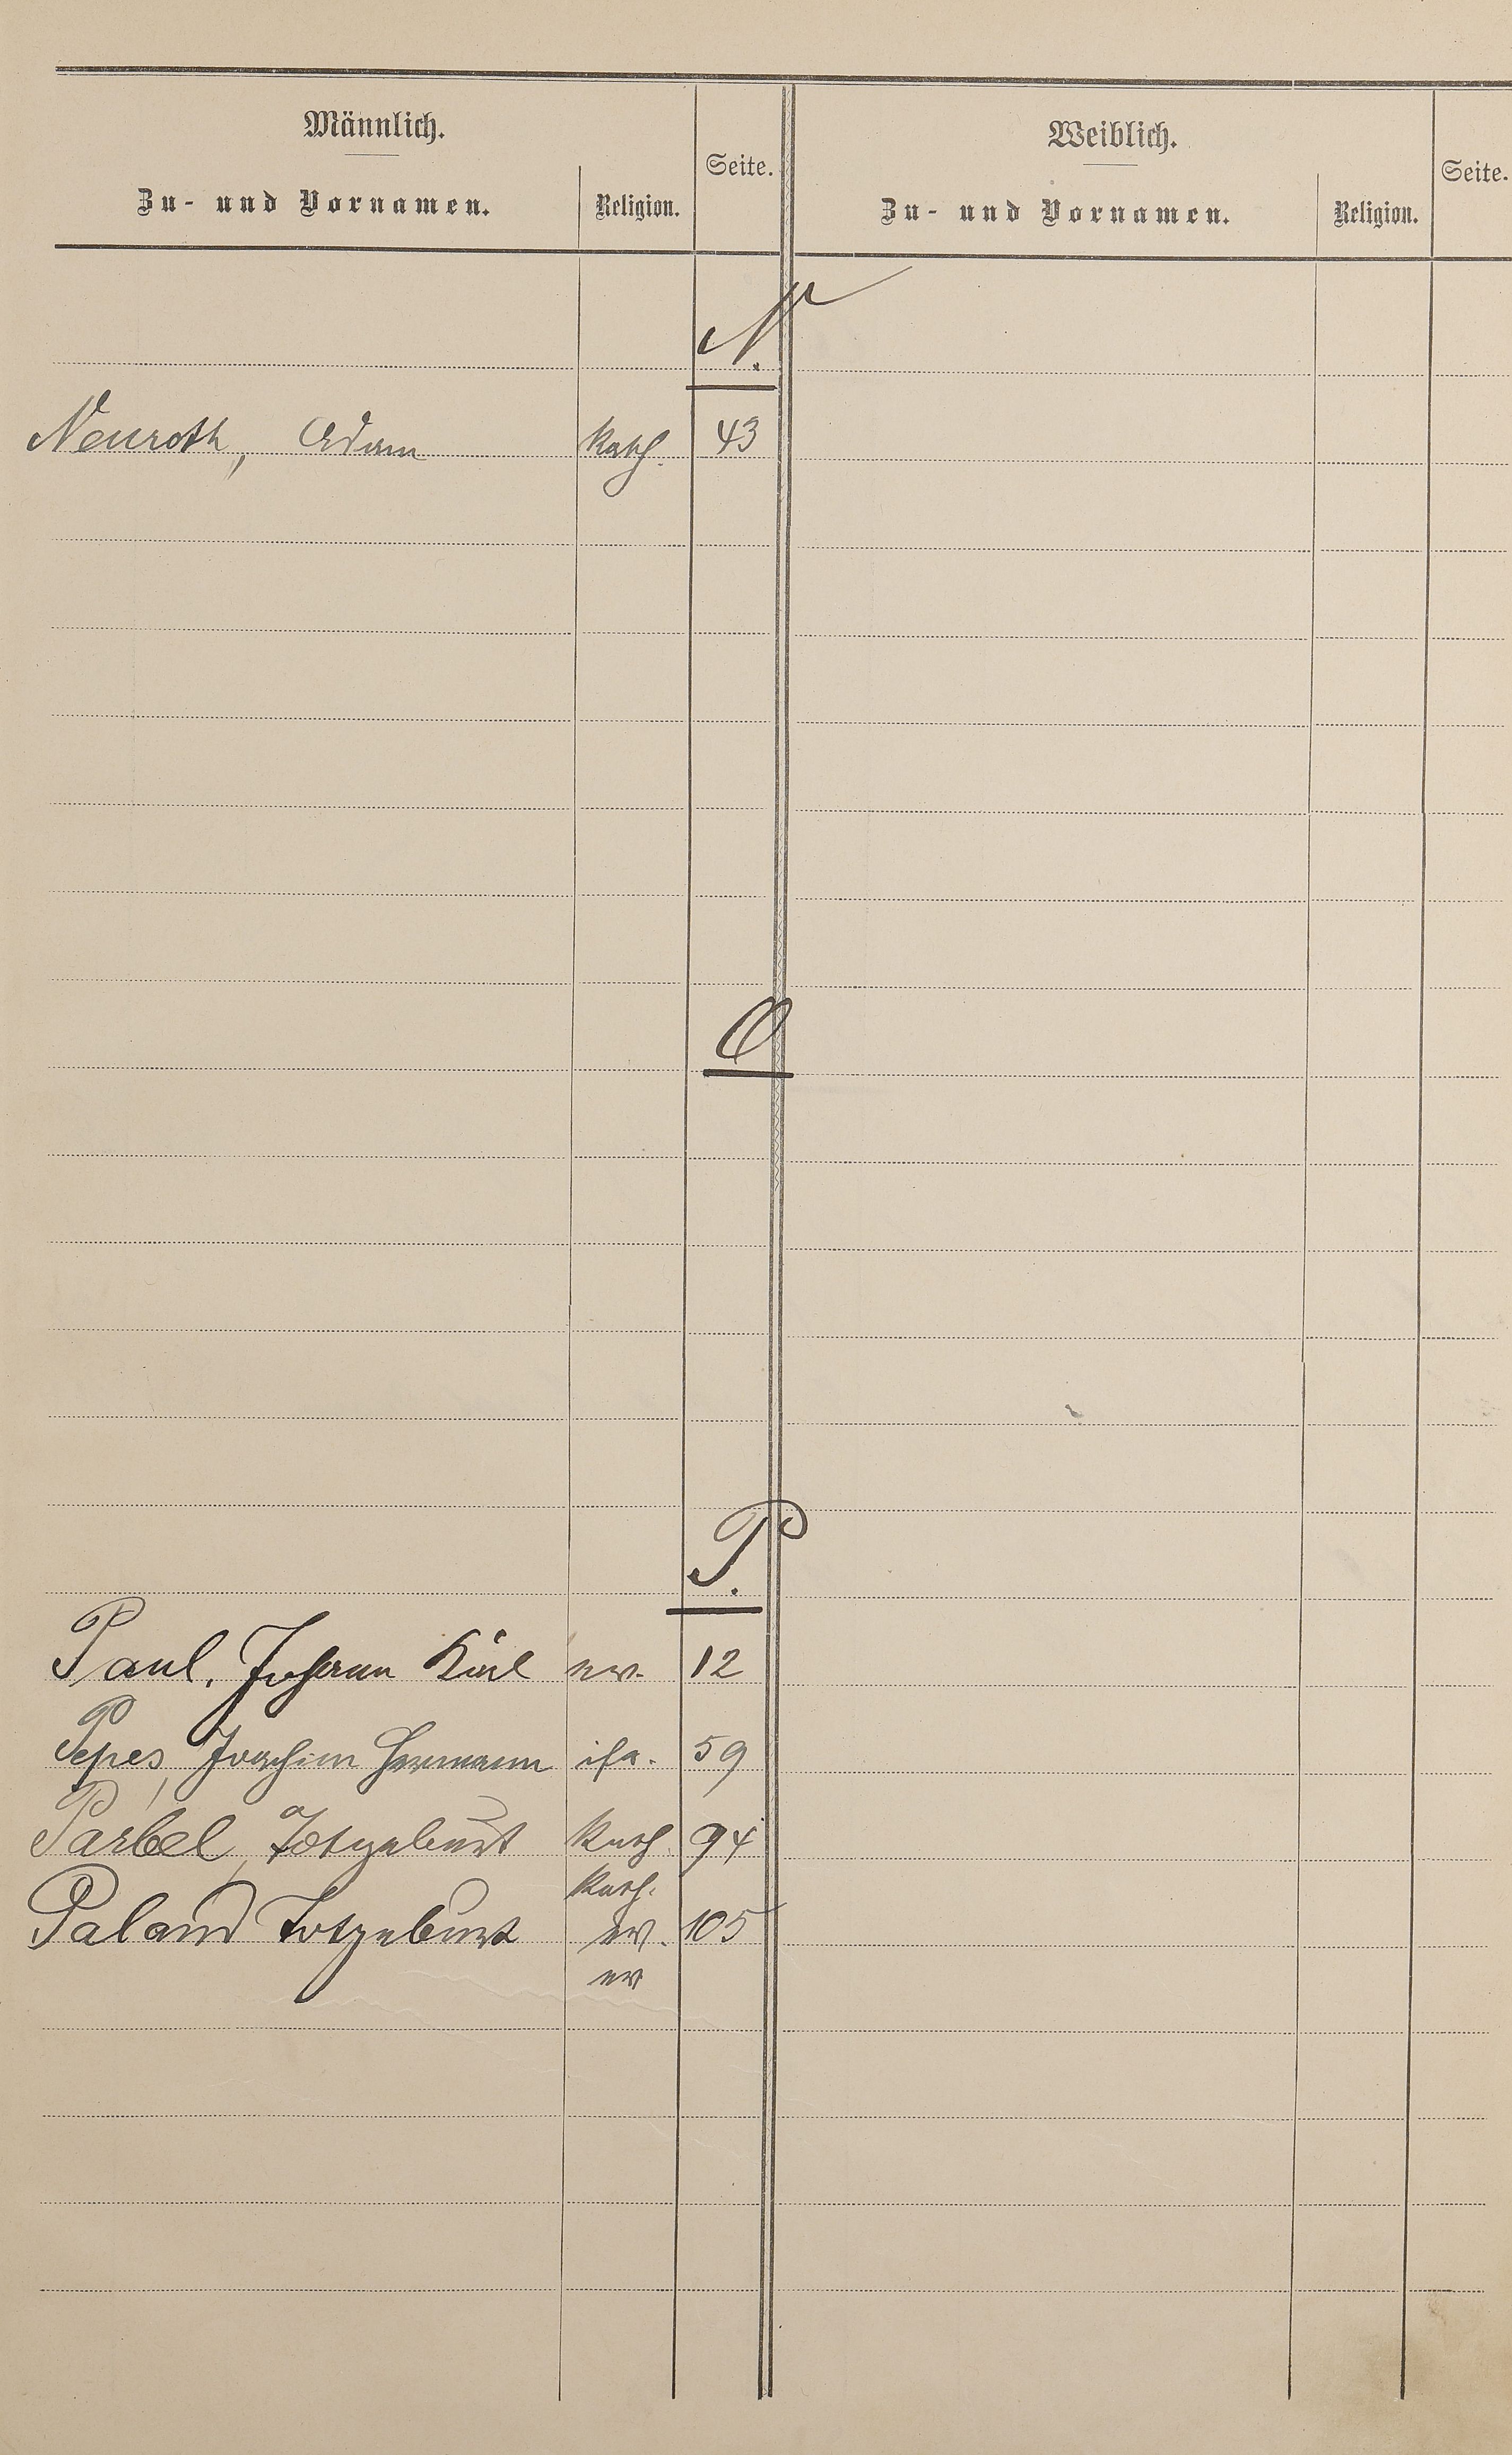 Männlich.
Zu- und Vornamen.
Religion.
Seite.
Weiblich.
Zu- und Vornamen.
Religion.
Seite.
N.
Neuroth, Adam kath. 43
O
P.
Paul, Johann Karl ev. 12
Pepes, Joachim Hermann isr. 59
Parbel, Totgeburt kath. 94
kath.
Paland Totgeburt ev. 105
ev